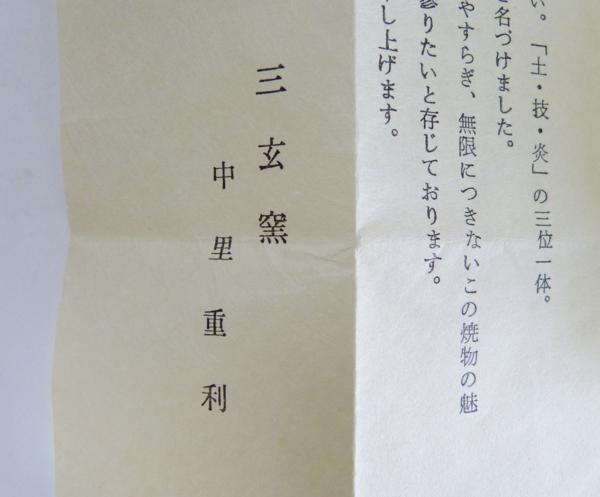 い。「土・技・炎」の三位一体。
名づけました。
やすらぎ、無限につきないこの焼物の魅
参りたいと存じております。
し上げます。
三玄窯
中里重利